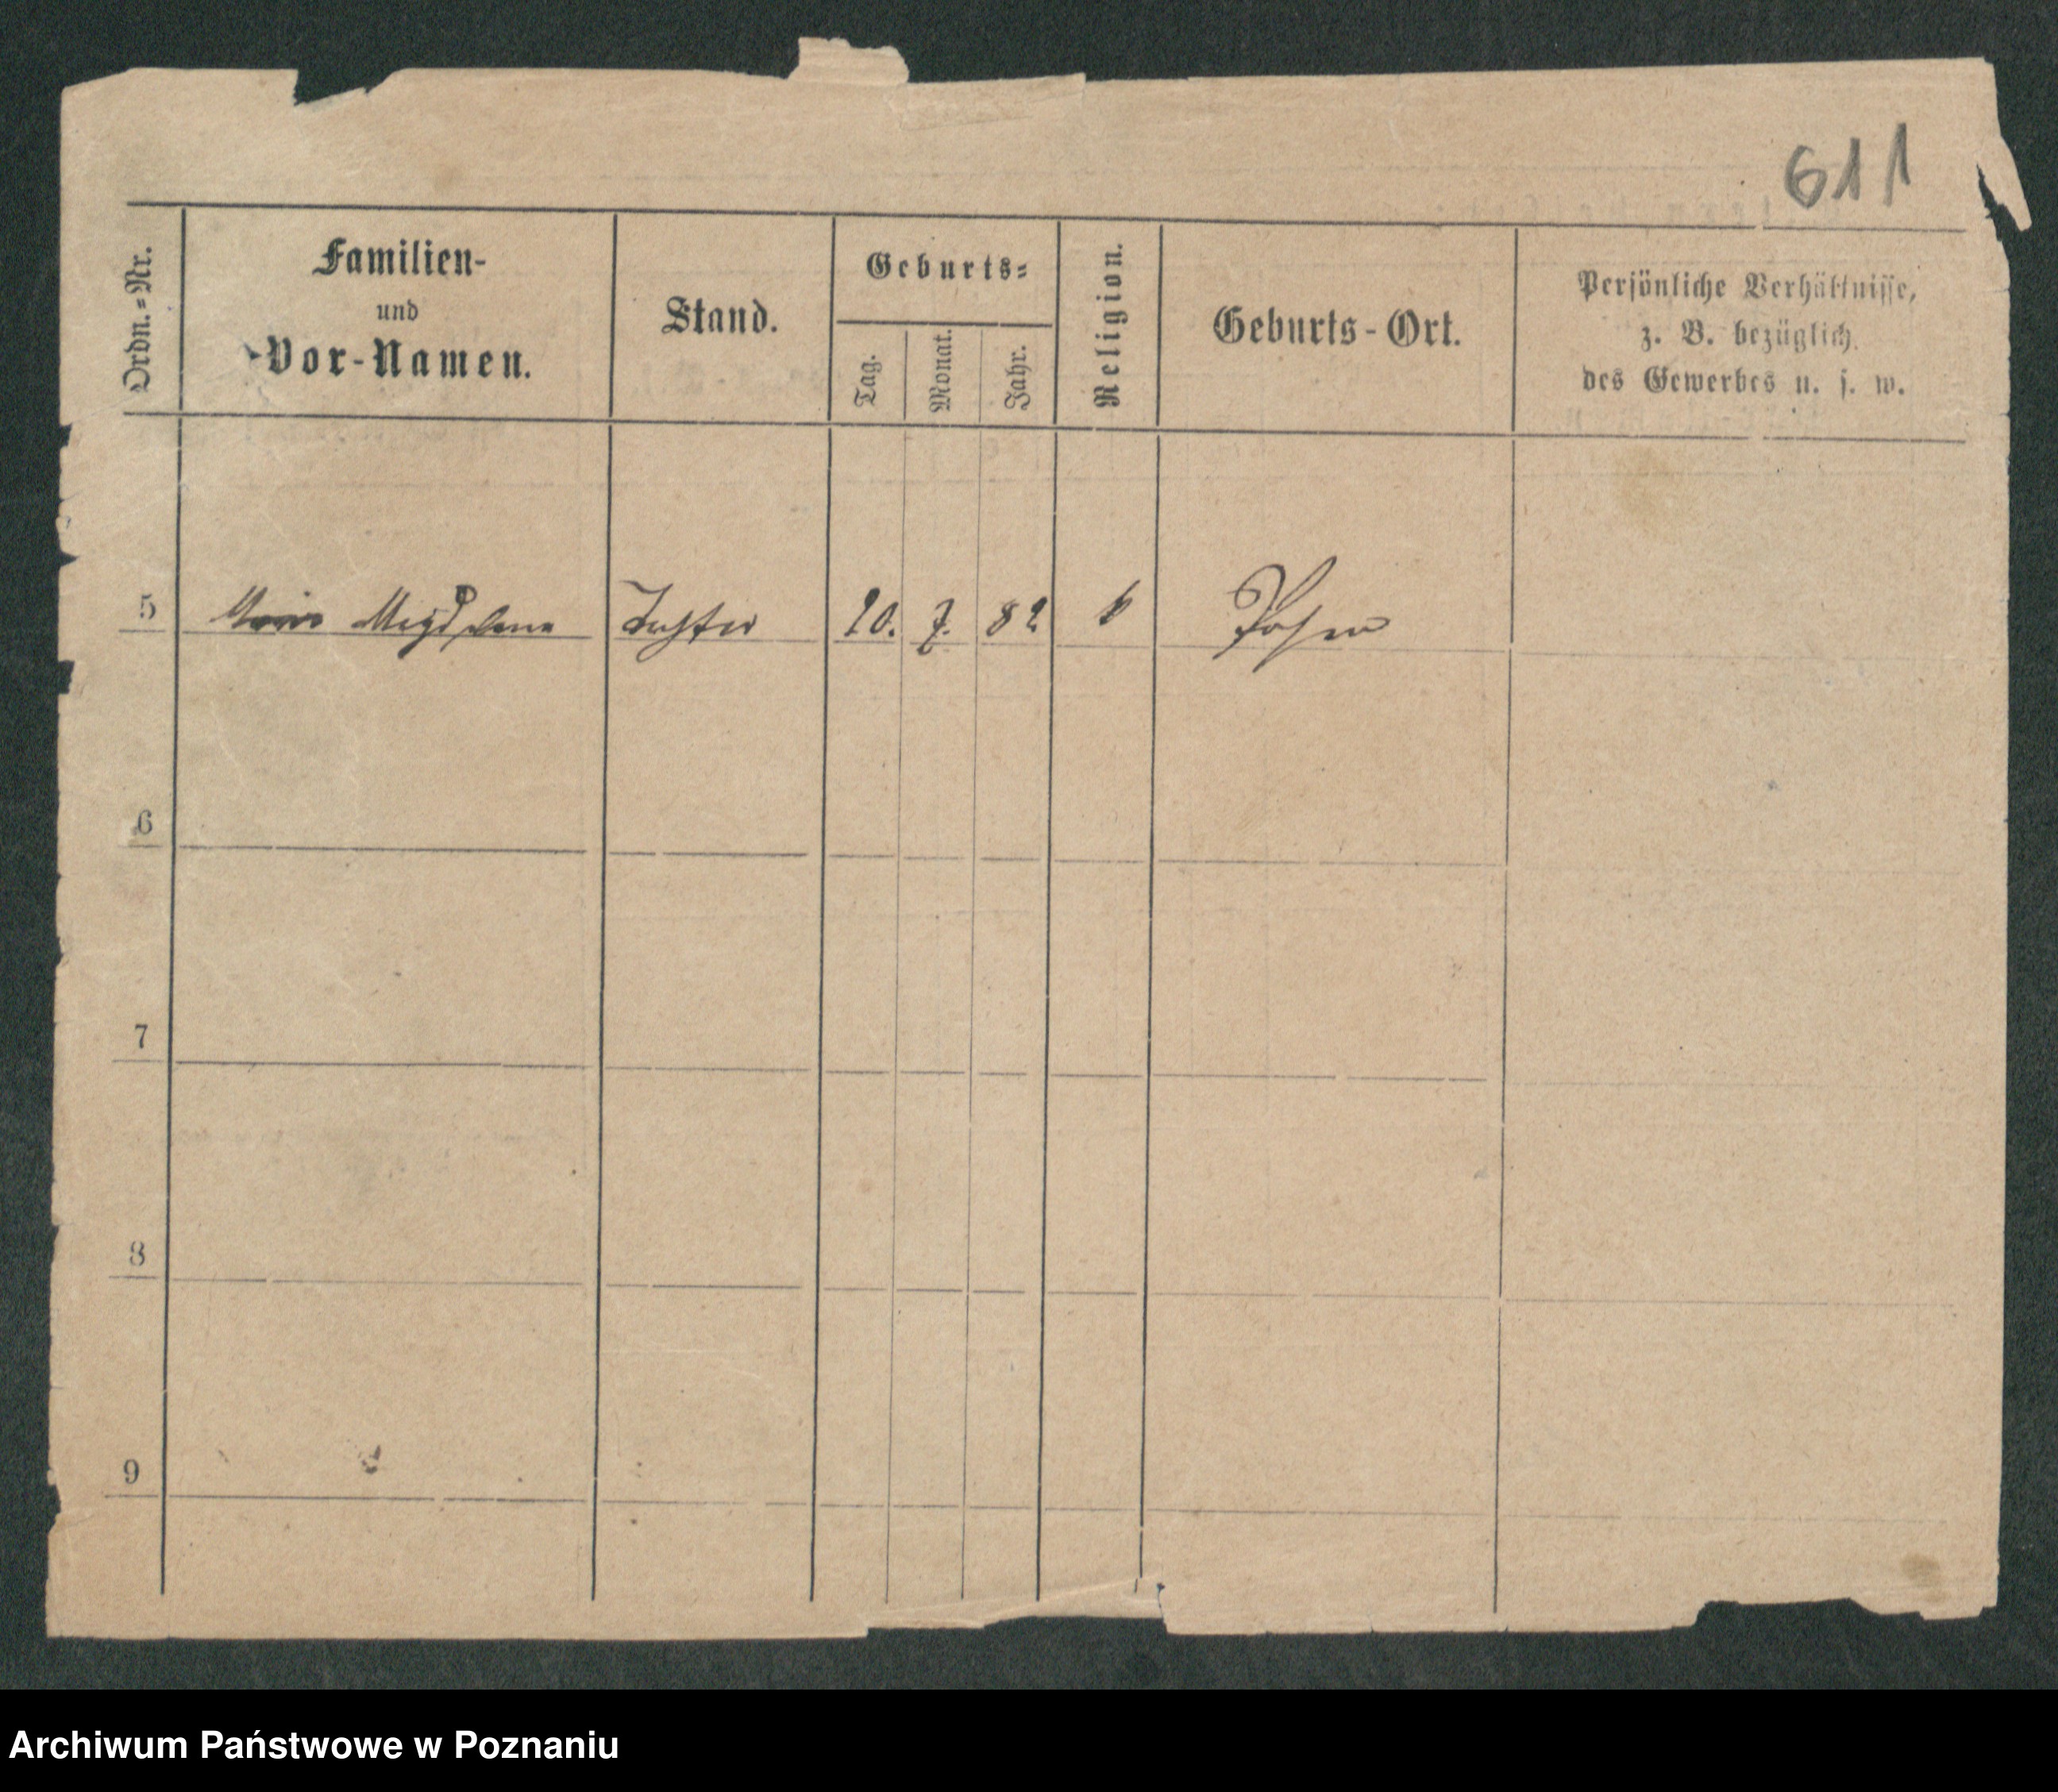 611
Ordn.=Nr.
Familien-
und
Vor-Namen.
Stand.
Geburts=
Tag.
Monat.
Jahr.
Religion.
Geburts-Ort.
Persönliche Verhältnisse,
z. B. bezüglich
des Gewerbes u. s. w.
5 Magdalena Tochter 20. 7. 82 k Posen
6
7
8
9
Archiwum Państwowe w Poznaniu